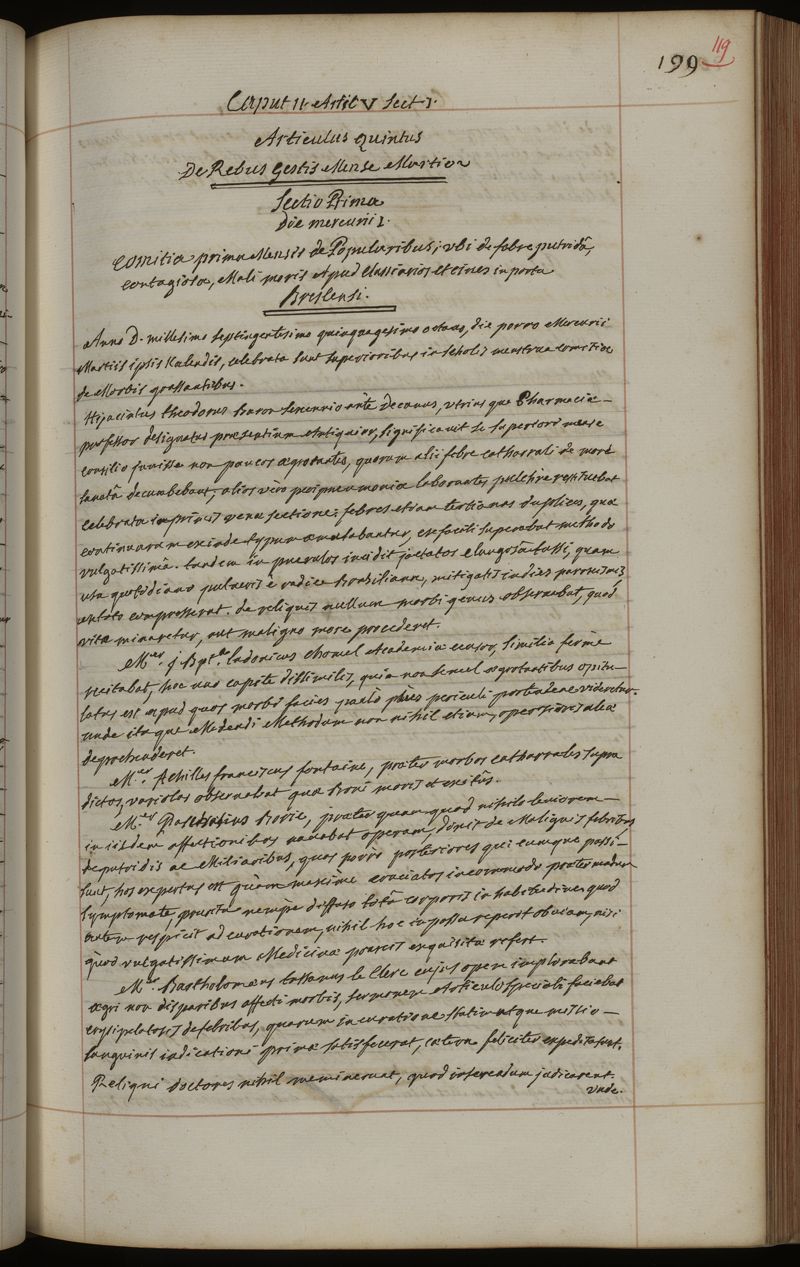 199 119
Caput II. Artic V Sect I.
Articulus Quintus
De Rebus Gestis Mense Martio
Sectio Prima
Die mercurii I.
Comitia prima Mensis de Popularibus, ubi de febre putridâ,
contagiosa, Mali moris apud Classiarios et cives in portu
Brestensi.
Anno D. millesimo septingentesimo quinquagesimo octavo, die porro Mercurii
Martii ipsis Kalendis, celebrata sunt superioribus in scholis menstrua comitia
de Morbis grassantibus.
Hyacinthus Theodorus Baron sexennio ante Decanus, utrius que Pharmaciæ
professor designatus præsentium Antiquior, significavit se superiori mense
consilio juvisse non paucos ægrotantes, quorum alii febre catharrali de more
decumbebant, alios verò peripneumonia laborantes pulchre restituebat
celebrata imprimis venæ sectione; febres etiam tertianas duplices, quæ
continuarum exinde typum æmulabantur, ex facili superabat methodo
vulgatissimâ. tandem in puerulos incidit jactatos clangosa tussi, quam
usu quotidiano pulveris è radice Brasiliana, mitigatis indies paroxismis
compresserat. de reliquis nullum morbi genus observabat, quod
vitæ minaretur, aut maligno more procederet.
Mer. J. Bpt. ludovicus Chomel Academiæ censor, similia ferme
recitabat, hoc uno capite dissimilis, quia non semel ægrotantibus opitu-
latus est apud quos morbi facies paulò plùs periculi portendere videretur.
unde ita que Medendi Methodum non nihil etiam operosiorem
deprehenderet.
Mer. Achilles franciscus fontaine, præter morbos catharrales supra
dictos, variolas observabat quæ Boni moris et exitûs.
Mer. Paschasius Borie, præter quam quod nihilo leviorem
in iisdem affectionibus navabat operam, de Malignis febribus
deputridis ac Miliaribus, quas porro posteriores qui cumque passi
sunt, hos expertus est quàm maxime cruciatos incommodo præter modum
symptomate, pruritu nempe diffuso totâ corporis in habitudine. quod
autem respicit ad curationem, nihil hoc in passu reperit obviam, nisi
quod vulgatissimam Medicinæ praxis exquisitæ refert.
Mer. Bartholomæus Tussanus le Clerc cujus opem implorabant
ægri non disparibus affecti morbis, sermonem Articulo speciali faciebat
erysipelatosis de febribus, quarum in curatione statim atque missio-
sanguinis indicationi primæ satisfecerat, cætera feliciter expedita sunt.
Reliqui doctores nihil meminerunt, quod inferendum judicarent.
unde.